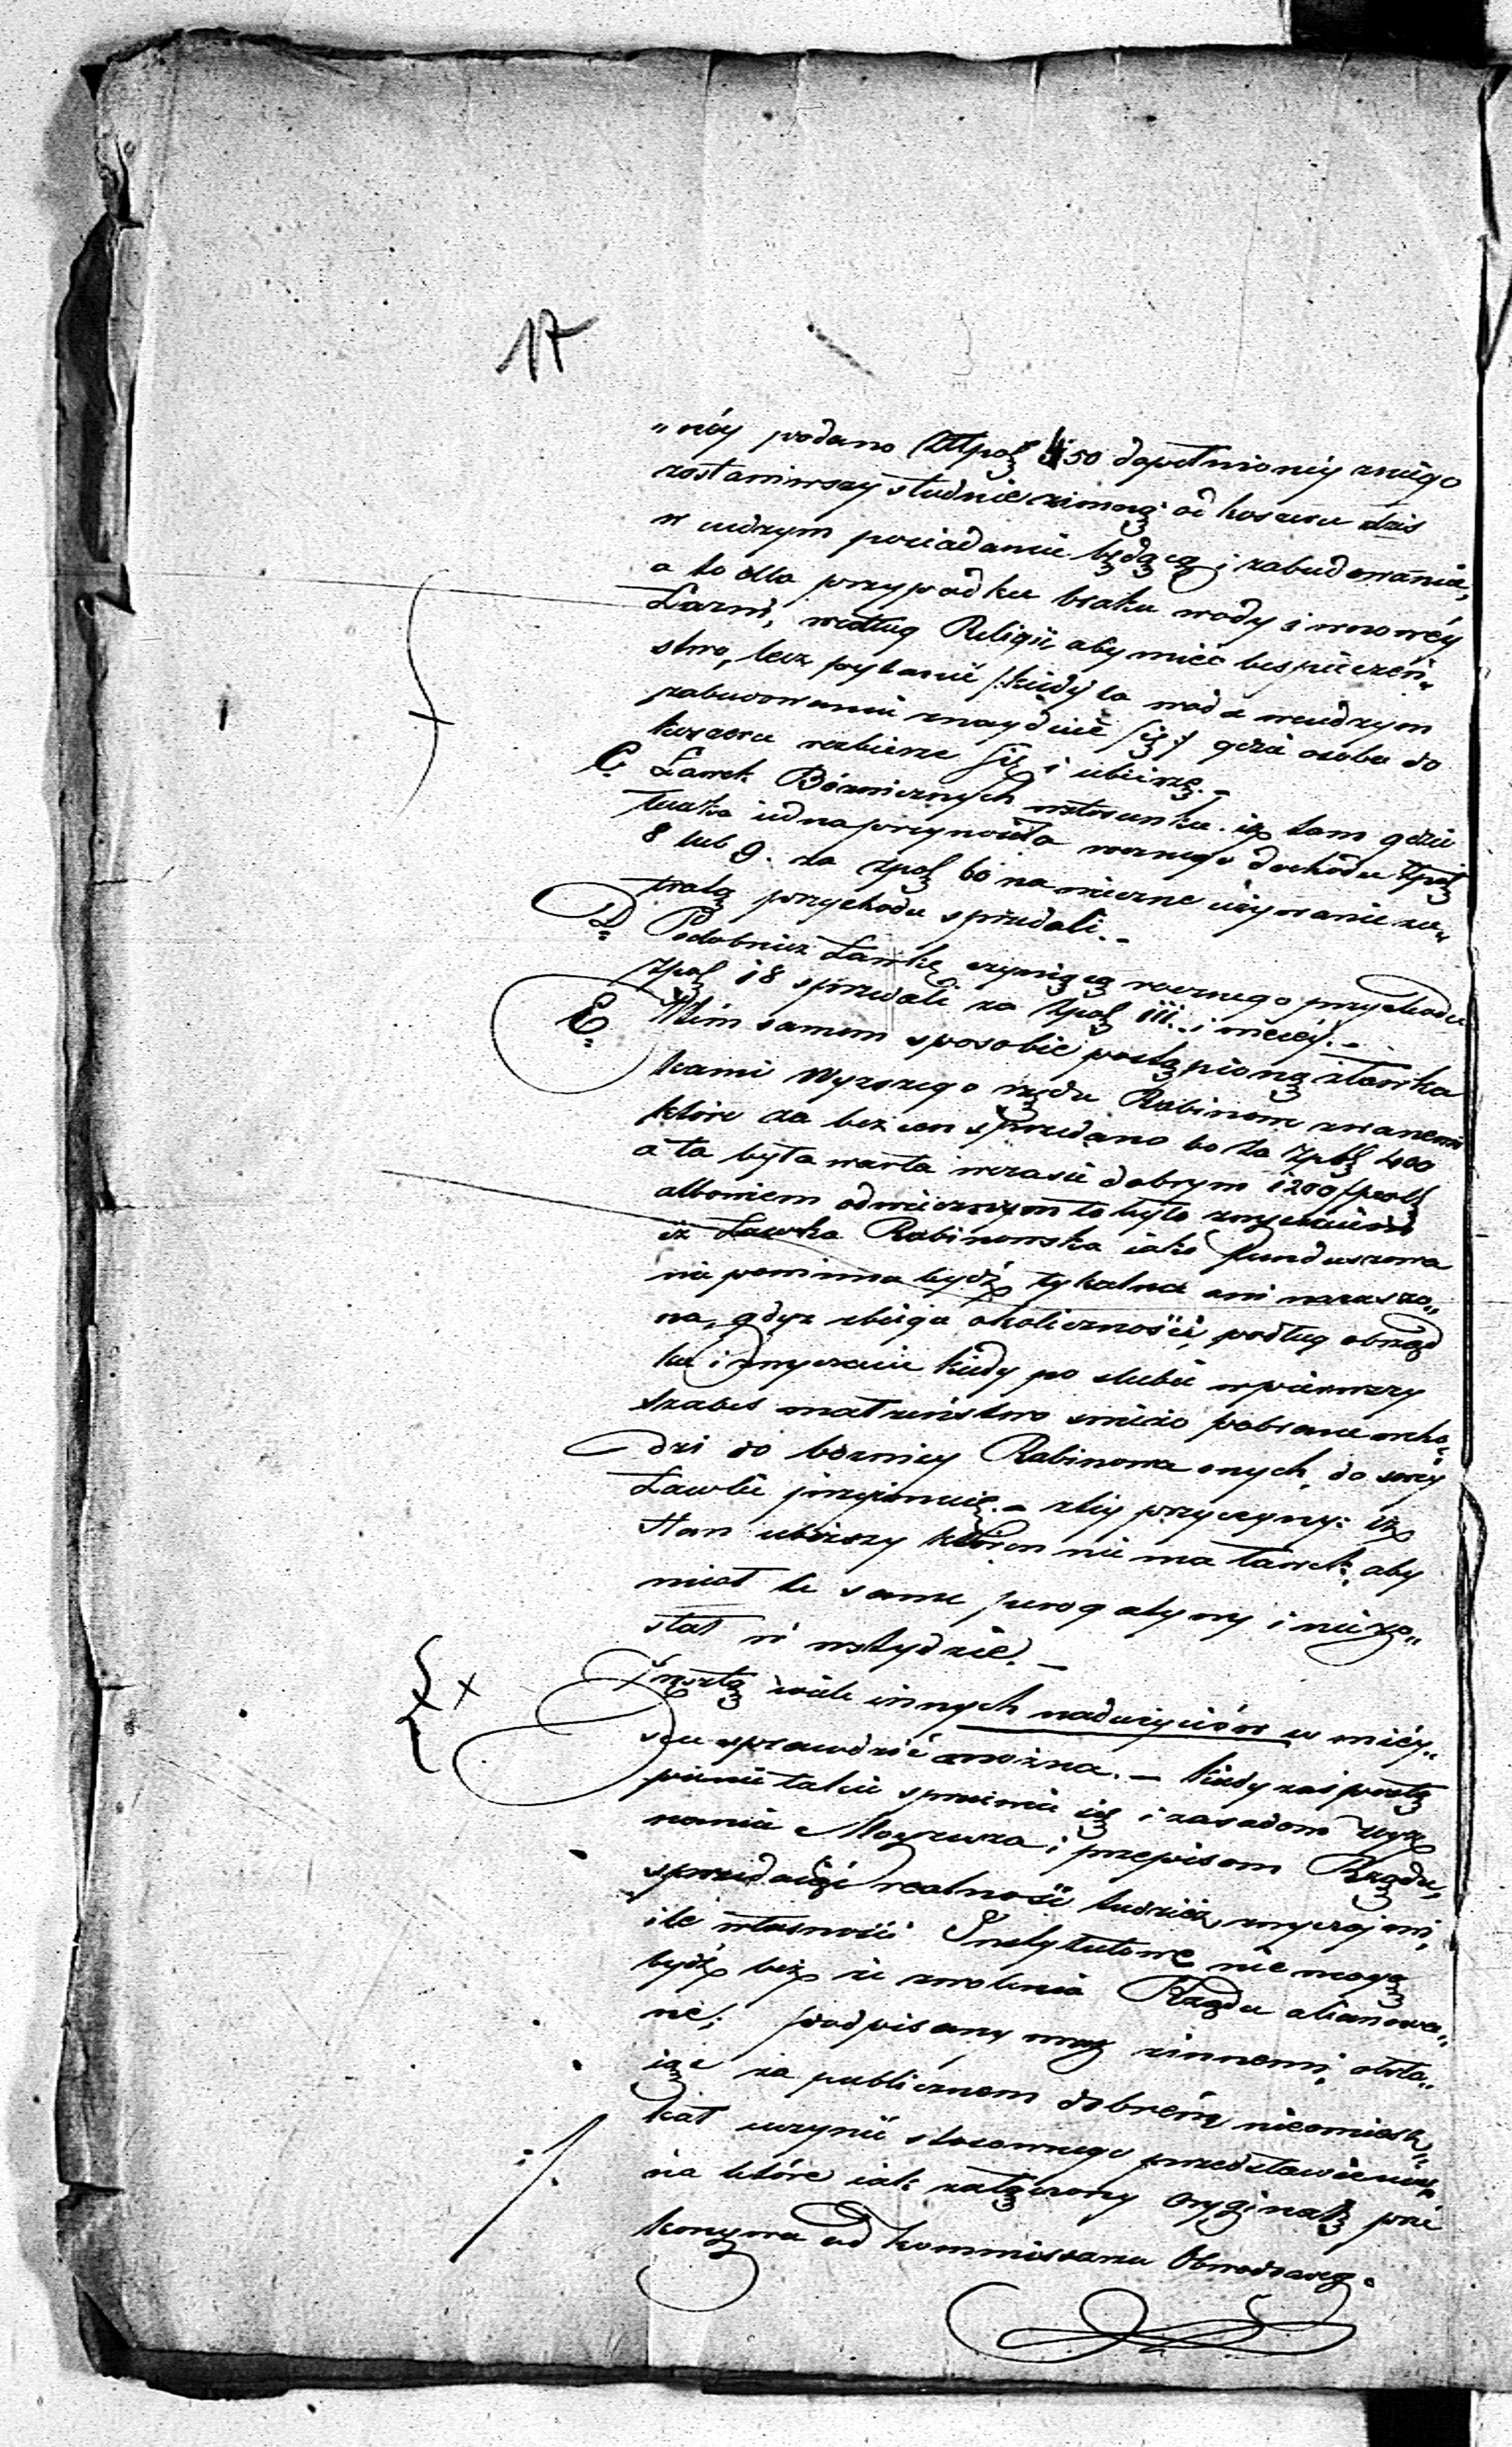 17
"néy podano Złłpol 450 dopełnioney zniego
zostawiwszy studnie zimną od koszeru dziś
w cudzym posiadaniu będącą i zabudowania,
a to dla przypadku braku wody i wnowéy
Łazni, według Religii aby mieć bespieczeń„
stwo, lecz pytanie /:kiedy ta woda wcudzym
zabudowaniu znayduie się:/ gdzie osoba do
koszeru rozbierze się i ubierze.-
C. Ławek Bóżnicznych wstosunku. iż tam gdzie
ławka iedna przynosiła rocznego dochodu Zpol
8 lub 9. za Zpol 60 na wieczne używanie za„
tratą przychodu sprzedali.-
D. Podobnież Ławkę czyniącą rocznego przychodu
Zpol 18 sprzedali za Zpol 111. i więcéy.-
E. Wtém samem sposobie postąpiono z ławka
kami Wyższego rzędu Rabinom zwanemi
które za bez cen sprzedano bo za Zpol 400
a ta była warta wczasie dobrym 1200 Zpol
albowiem odwiecznym to było zwyczaiem
iż Ławka Rabinowska iako funduszowa
nie powinna bydź tykalna ani wzruszo„
na, gdyż zbiega okoliczności, podług obrząd
ku i zwyczaiu kiedy po slubie wpierwszy
szabes małżeństwo swieżo pobrane wcho„
dzi do bóżnicy Rabinowa onych do swéy
Ławki przyimuie.- ztéy przyczyny: iż
stan uboższy któren nie ma ławek, aby
miał te same prerogatywy i niezo„
stał w wstydzie.-
Zresztą wiele innych nadużyciów w miéy„
scu sprawdzić można.- kiedy zaś postę
powanie takie sprzeciwia się i zasadom Wyz
nania Moyzesza i przepisom Rządu,
sprzedaiąc realności tudzież zwyczajmi,
ile własności Instytutowe nie mogą
bydź bez ze zwolenia Rządu alianowa„
ne; podpisany wraz zinnemi, obsta„
iąc za publicznem dobrem nieomiesz„
kał uczynić stosownego przedstawienia
na które iak załączony Oryginał prze
konywa od Kommissarza Obwodowego.